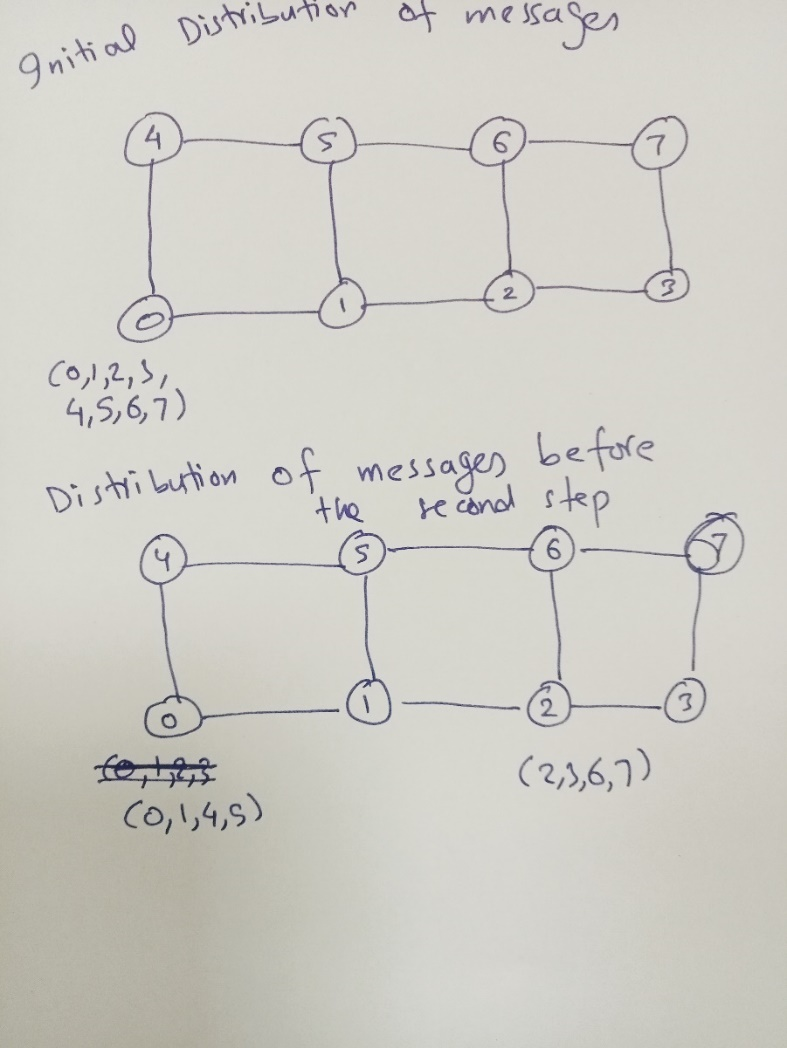 Initial Distribution of messages
4 5 6 7
0 1 2 3
(0,1,2,3,
4,5,6,7)
Distribution of messages before
the second step
4 5 6 7
0 1 2 3
(0,1,2,3
(0,1,4,5)
(2,3,6,7)